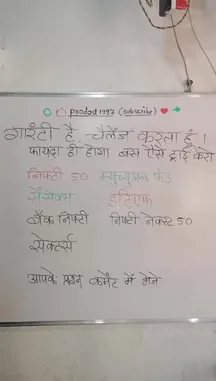 prodod1997 (subscribe)
गारंटी है, चैलेंज करता हूँ।
फायदा ही होगा बस ऐसे ट्राई करो
निफ्टी 50 म्युचुअल फंड
सेंसेक्स इटिएफ
बैंक निफ्टी निफ्टी नेक्स्ट 50
सेक्टर्स
आपके प्रश्न कमेंट में भेजे